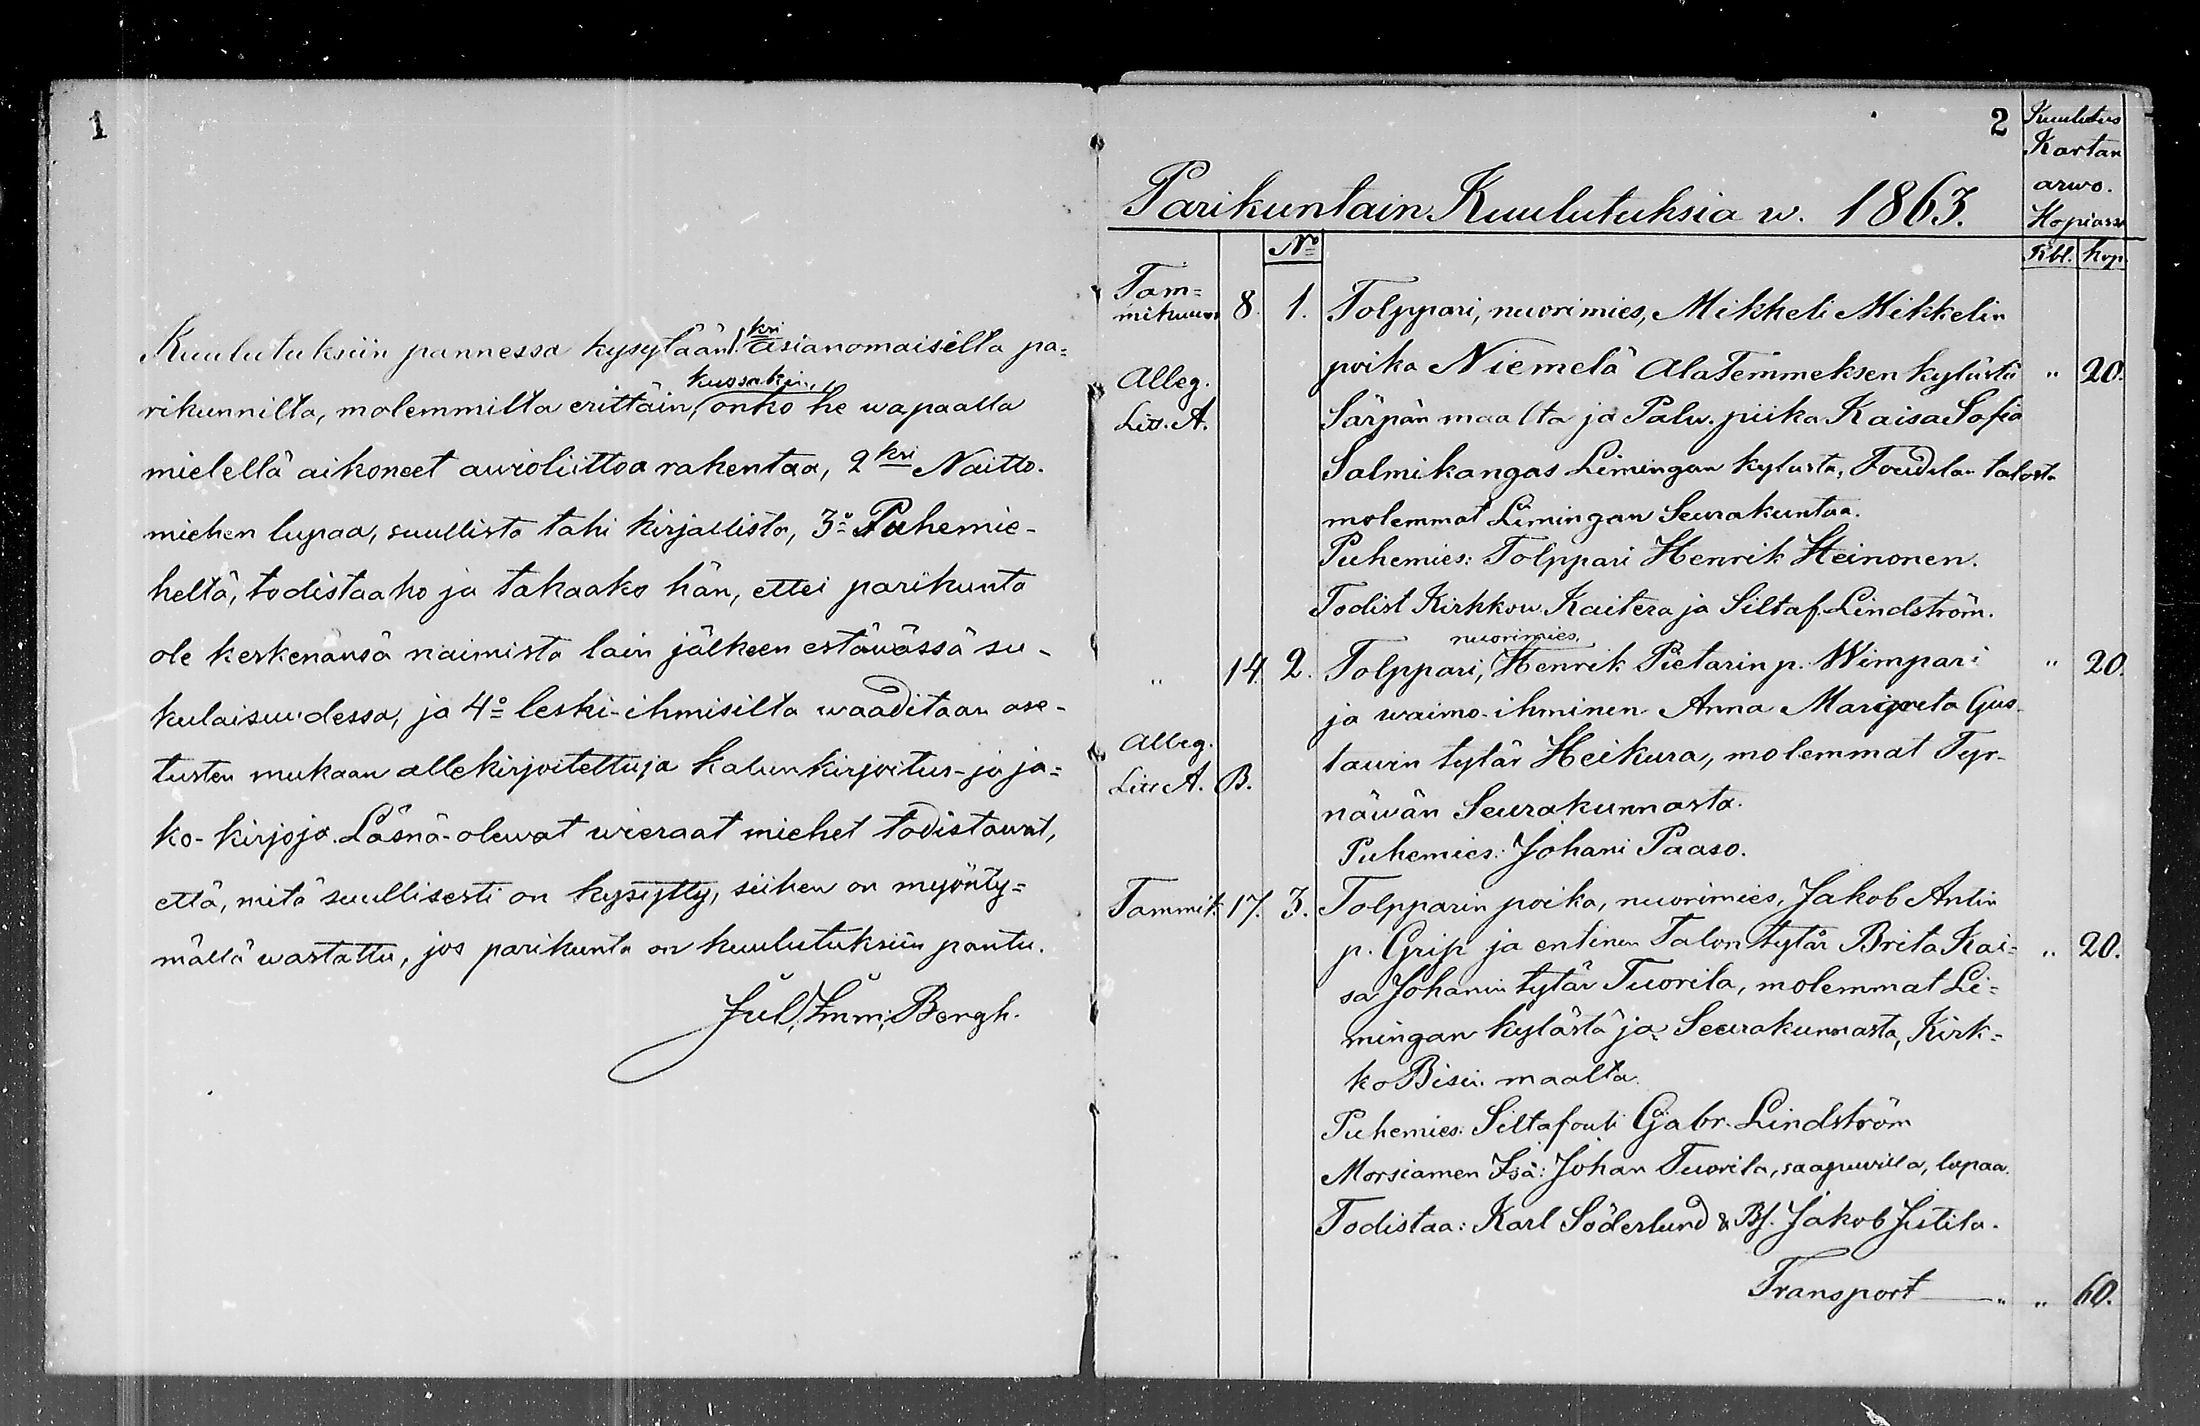 1
Kuulutuksiin pannessa kysytään 1kri asianomaisilta pa=
rikunnilta, molemmilta erittäin, kussakin, onko he wapaalla
mielellä aikoneet awioliittoa rakentaa, 2kri Naitto-
miehen lupaa, suullista tahi kirjallista, 3o Puhemie-
heltä, todistaako ja takaako hän, ettei parikunta
ole keskenänsä naimista lain jälkeen estäwässä su-
kulaisuudessa, ja 4o leski-ihmisiltä waaditaan ase-
tusten mukaan allekirjoitettuja kalunkirjoitus- ja ja=
ko-kirjoja. Läsnä-olewat wieraat miehet todistawat,
että, mitä suullisesti on kysytty, siihen on myönty=
mällä wastattu, jos parikunta on kuulutuksiin pantu.
Jul. Imm. Bergh.
2
Kuulutus
Kartan
arwo.
Hopiassa
Parikuntain Kuulutuksia w. 1863.
No Rbl. kop.
Tam=
mikuun 8. 1. Tolppari, nuorimies, Mikheli Mikkelin
poika Niemelä AlaTemmeksen kylästä " 20.
Alleg.
Litt. A. Särpän maalta ja Palw. piika Kaisa Sofia
Salmikangas Limingan kylästä, talosta
molemmat Limingan Seurakuntaa.
Puhemies: Tolppari Henrik Heinonen.
Todist Kirkkow. Kaitera ja Siltaf. Lindström.
nuorimies,
" 14. 2. Tolppari, Henrik Pietarin p. Wimpari " 20.
ja waimo-ihminen Anna Margreta Gus-
Alleg. tawin tytär Heikura, molemmat Tyr-
Litt A. B. näwän Seurakunnasta.
Puhemies: Johani Paaso.
Tammik. 17. 3. Tolpparin poika, nuorimies, Jakob Antin
p. Grip ja entinen Talon tytär Brita Kai= " 20.
sa Johanin tytär Tuorila, molemmat Li=
mingan kylästä ja Seurakunnasta, Kirk=
ko maalta.
Puhemies: Siltafouti Gabr. Lindström
Morsiamen Isä: Johan Tuorila, saapuwilla, lupaa.
Todistaa: Karl Söderlund & Jakob Jutila.
Transport " " 60.